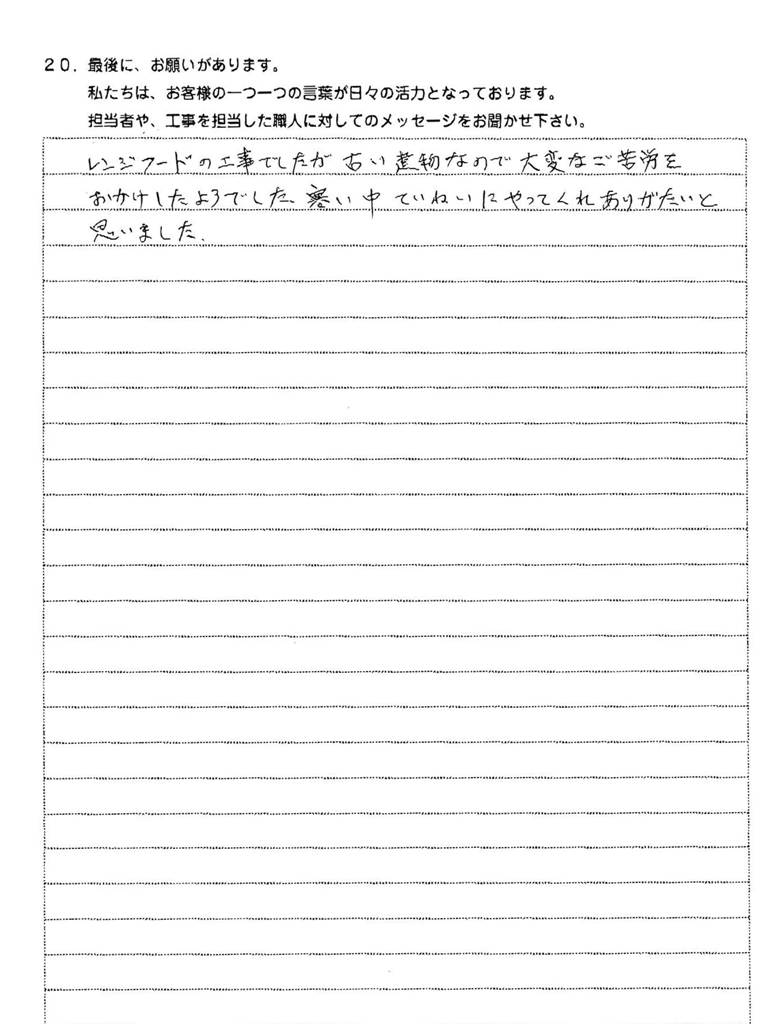 20. 最後に、お願いがあります。
私たちは、お客様の一つ一つの言葉が日々の活力となっております。
担当者や、工事を担当した職人に対してのメッセージをお聞かせ下さい。
レンジフードの工事でしたが古い建物なので大変なご苦労を
おかけしたようでした、寒い中ていねいにやってくれありがたいと
思いました.